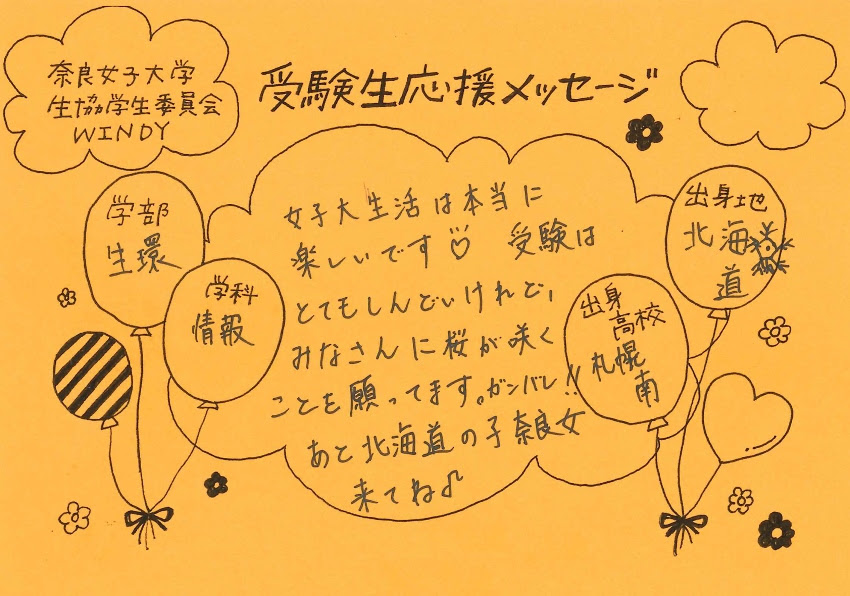 奈良女子大学
生協学生委員会
WINDY
受験生応援メッセージ
学部
生環
学科
情報
女子大生活は本当に
楽しいです♡ 受験は
とてもしんどいけれど、
みなさんに桜が咲く
ことを願ってます。ガンバレ!!
あと北海道の子奈良女
来てね♪
出身地
北海
道
出身
高校
札幌
南